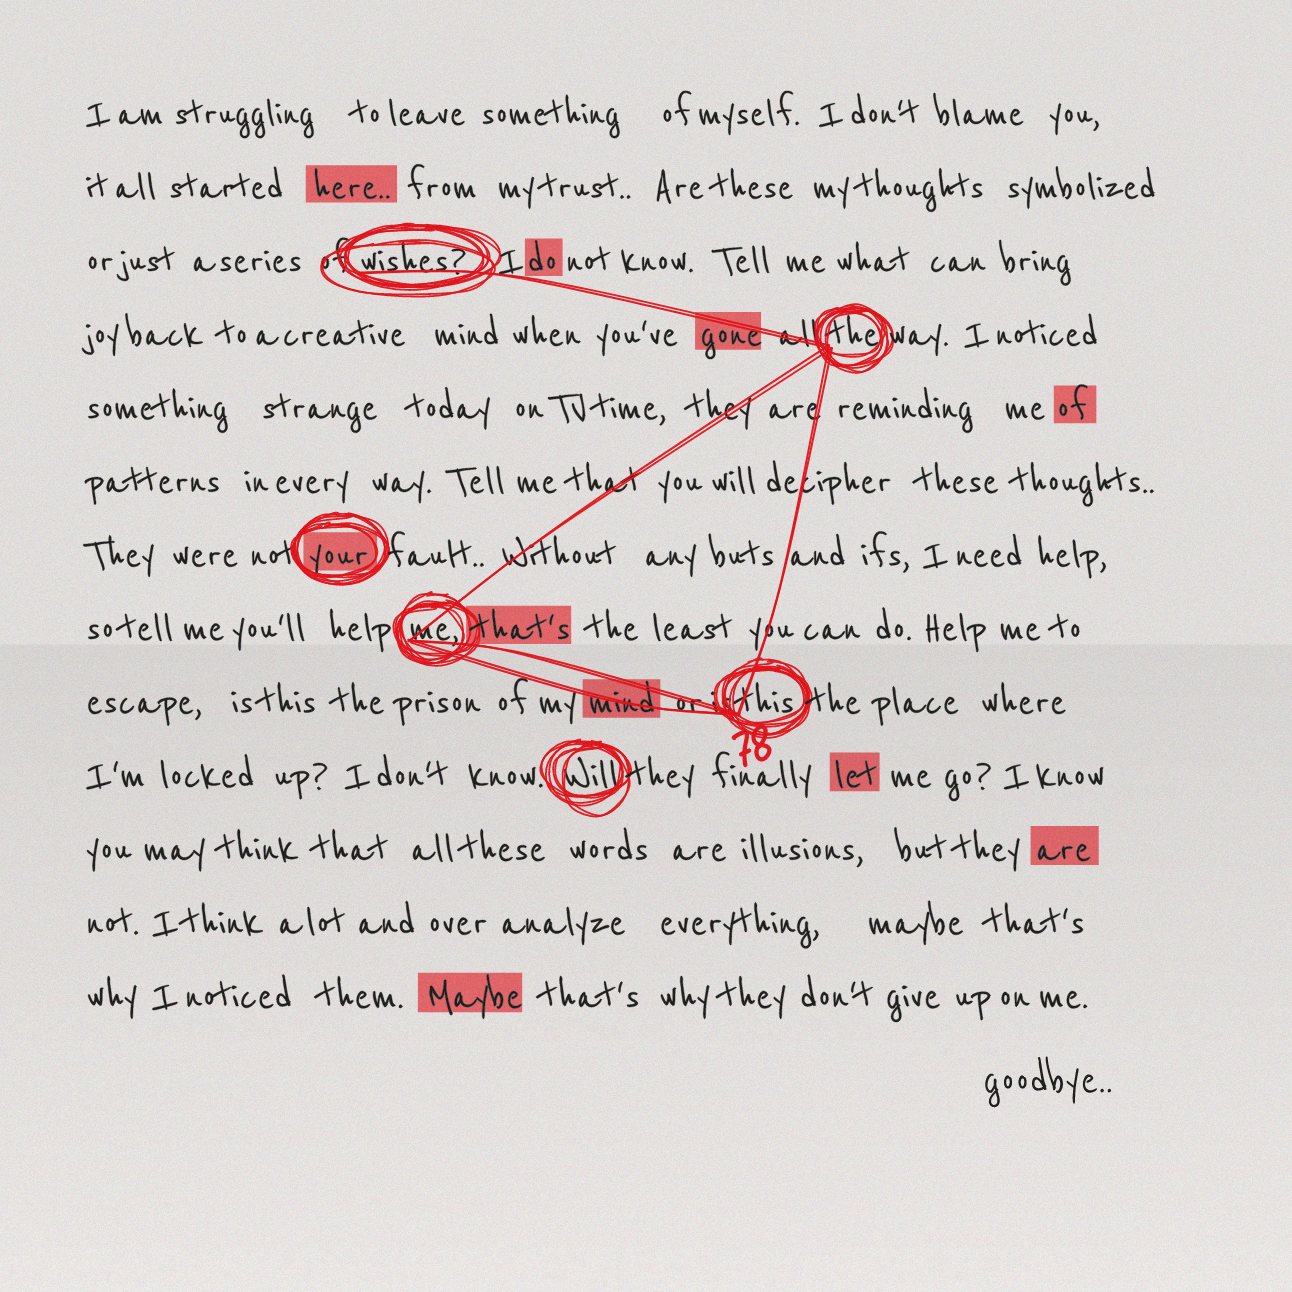 I am struggling to leave something of myself. I don't blame you,
it all started here.. from my trust.. Are these my thoughts symbolized
or just a series of wishes? I do not know. Tell me what can bring
joy back to a creative mind when you've gone all the way. I noticed
something strange today on TV time, they are reminding me of
patterns in every way. Tell me that you will decipher these thoughts..
They were not your fault.. Without any buts and ifs, I need help,
so tell me you'll help me, that's the least you can do. Help me to
escape, is this the prison of my mind or is this the place where
78
I'm locked up? I don't know. Will they finally let me go? I know
you may think that all these words are illusions, but they are
not. I think a lot and over analyze everything, maybe that's
why I noticed them. Maybe that's why they don't give up on me.
goodbye..